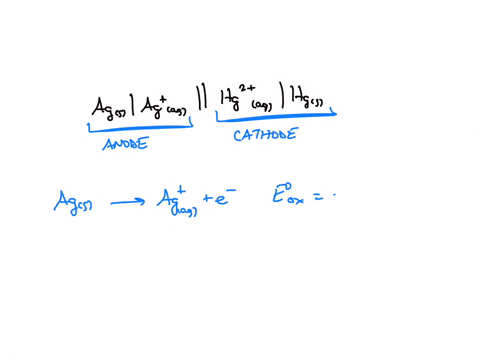 Ag(s) | Ag⁺(aq) || Hg²⁺(aq) | Hg(s)
ANODE CATHODE
Ag(s) ⟶ Ag⁺(aq) + e⁻ E⁰ox = -